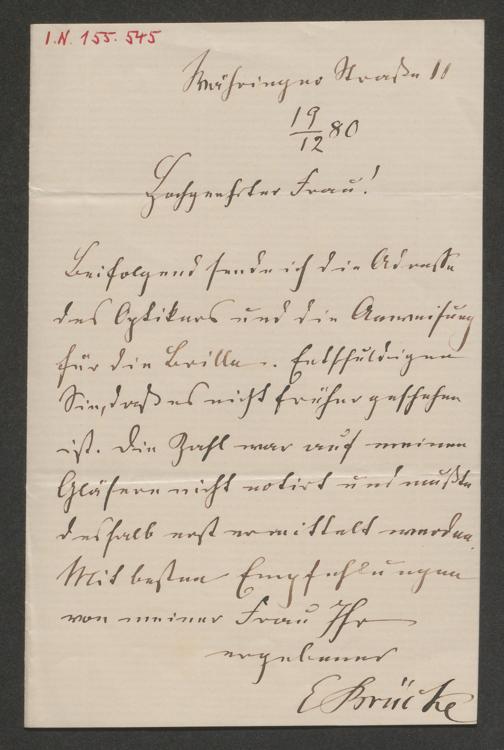 I.N. 155.545
Währinger Straße 11
19/12 80
Hochgeehrter Frau!
Beifolgend sende ich die Adresse
des Optikers und die Anweisung
für die Brille. Entschuldigen
Sie, daß es nicht früher geschehen
ist. Die Zahl war auf meinen
Gläsern nicht notirt und mußte
deshalb erst ermittelt werden.
Mit besten Empfehlungen
von meiner Frau Ihr
ergebener
E Brücke